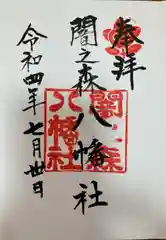 奉拝
闇之森八幡社
令和四年七月廿日
闇之森
八幡社